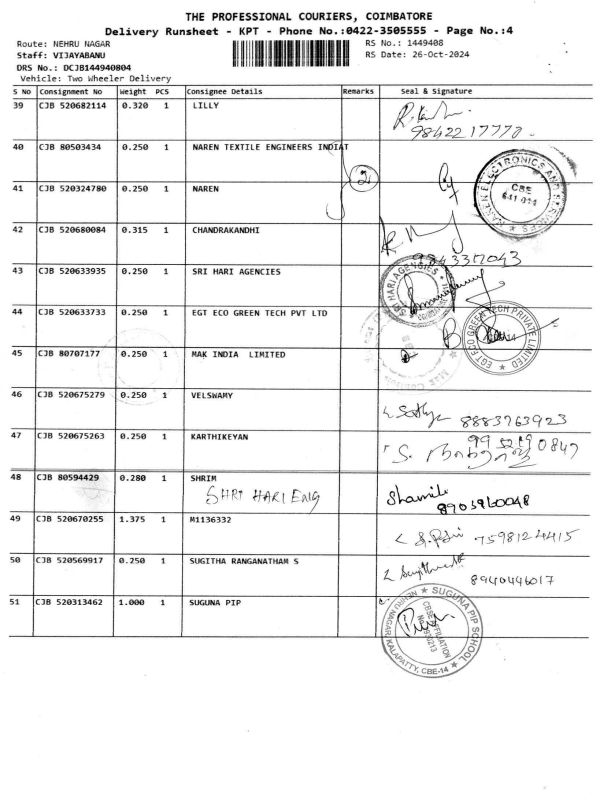 THE PROFESSIONAL COURIERS, COIMBATORE
Delivery Runsheet - KPT - Phone No.:0422-3505555 - Page No.:4
Route: NEHRU NAGAR RS No.: 1449408
Staff: VIJAYABANU RS Date: 26-Oct-2024
DRS No.: DCJB144940804
Vehicle: Two Wheeler Delivery
S No Consignment No Weight PCS Consignee Details Remarks Seal & Signature
39 CJB 520682114 0.320 1 LILLY
9842217770
40 CJB 80503434 0.250 1 NAREN TEXTILE ENGINEERS INDIAT
2
NAREN ELECTRONICS AND SERVICES
CBE
641 014
41 CJB 520324780 0.250 1 NAREN
42 CJB 520680084 0.315 1 CHANDRAKANDHI
43 CJB 520633935 0.250 1 SRI HARI AGENCIES
SRI HARI AGENCIES
44 CJB 520633733 0.250 1 EGT ECO GREEN TECH PVT LTD
EGT ECO GREEN TECH PRIVATE LIMITED
45 CJB 80707177 0.250 1 MAK INDIA LIMITED
46 CJB 520675279 0.250 1 VELSWAMY
8883763923
47 CJB 520675263 0.250 1 KARTHIKEYAN
48 CJB 80594429 0.280 1 SHRIM
SHRI HARI ENG
49 CJB 520670255 1.375 1 M1136332
7598124415
50 CJB 520569917 0.250 1 SUGITHA RANGANATHAM S
8940446017
51 CJB 520313462 1.000 1 SUGUNA PIP
SUGUNA PIP SCHOOL
NEHRU NAGAR, KALAPATTY, CBE-14
CBSE AFFILIATION